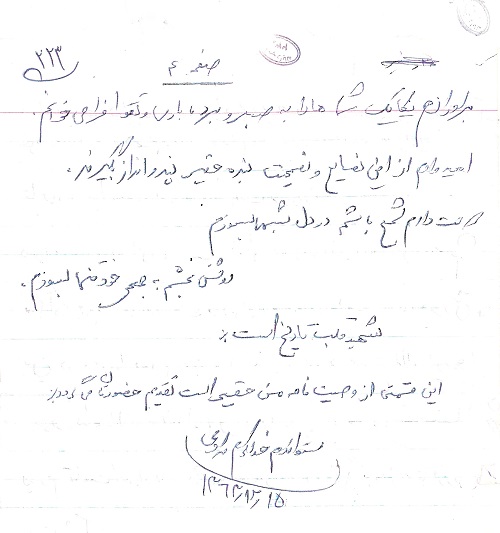 ۲۲۳
صفحه ۴
برادرانم یکایک شما ها را به صبر و بردباری و تقوا فرا می خوانم.
امیدوارم از این نصایح و نصیحت بنده حقیر پند و اندرز بگیرند.
دوست دارم شمع باشم در دل شبها بسوزم
روشنی بخشم به جمعی خود تنها بسوزم.
شهید قلب تاریخ است:
این قسمتی از وصیت نامه من حقیر است تقدیم حضورتان می گردد:
خداکرم
۱۳۶۳/۱۲/۱۵